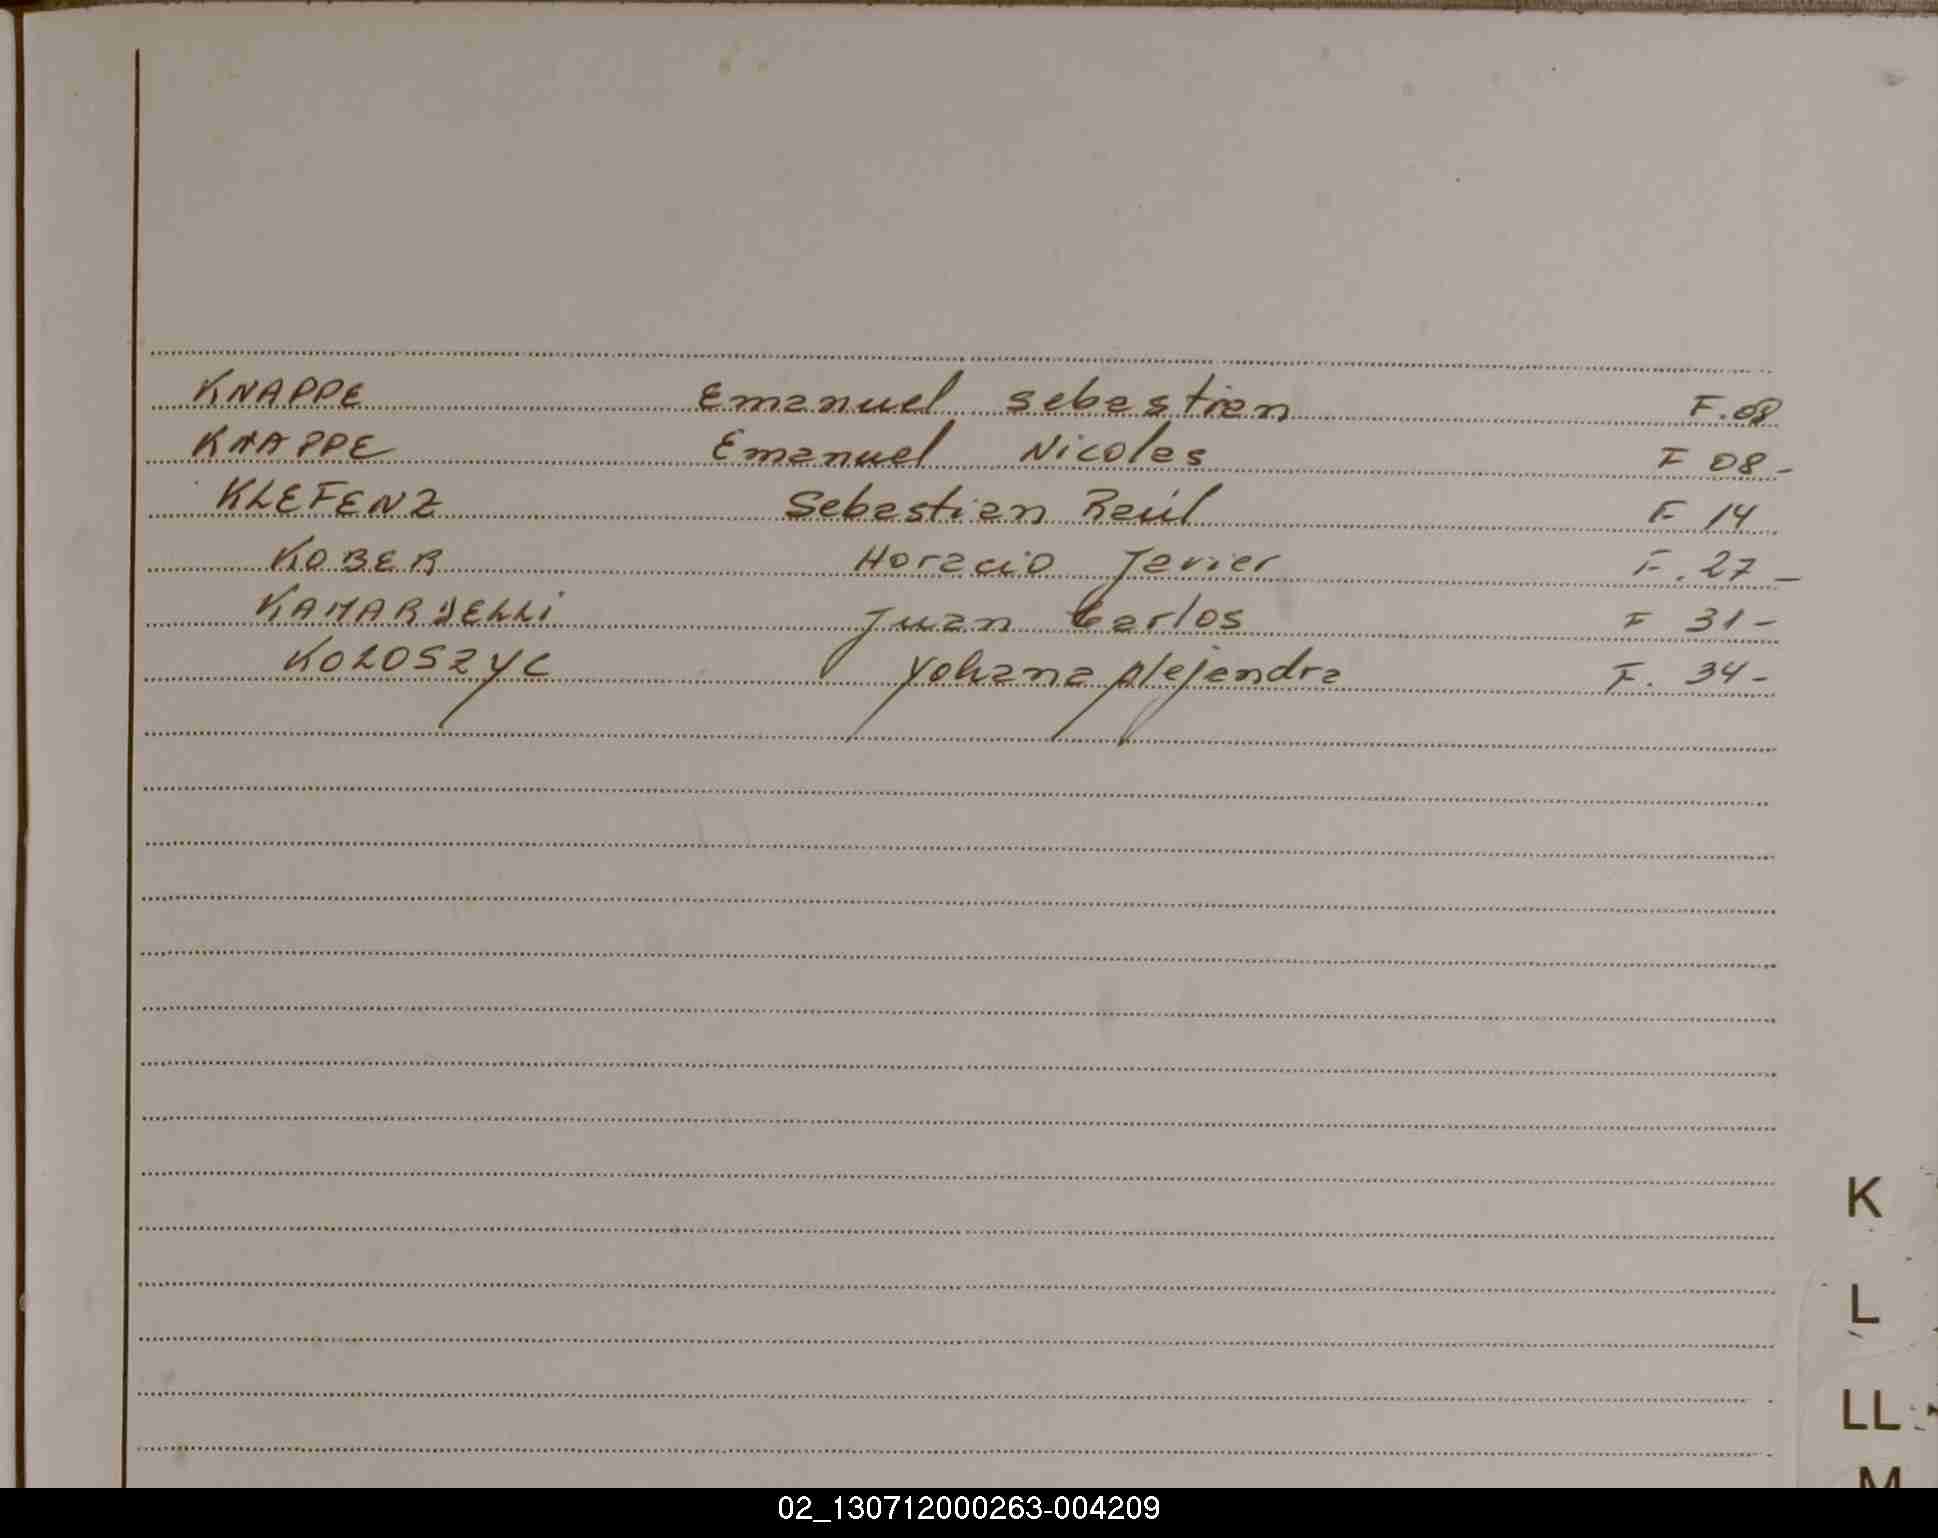 KNAPPE Emanuel Sebastian F.08
KNAPPE Emanuel Nicolas F 08-
KLEFENZ Sebastian Raúl F 14
KOBER Horacio Javier F. 27-
Juan Carlos F 31-
KOLOSZYC Yohana Alejandra F. 34-
K
L
LL
M
02_130712000263-004209